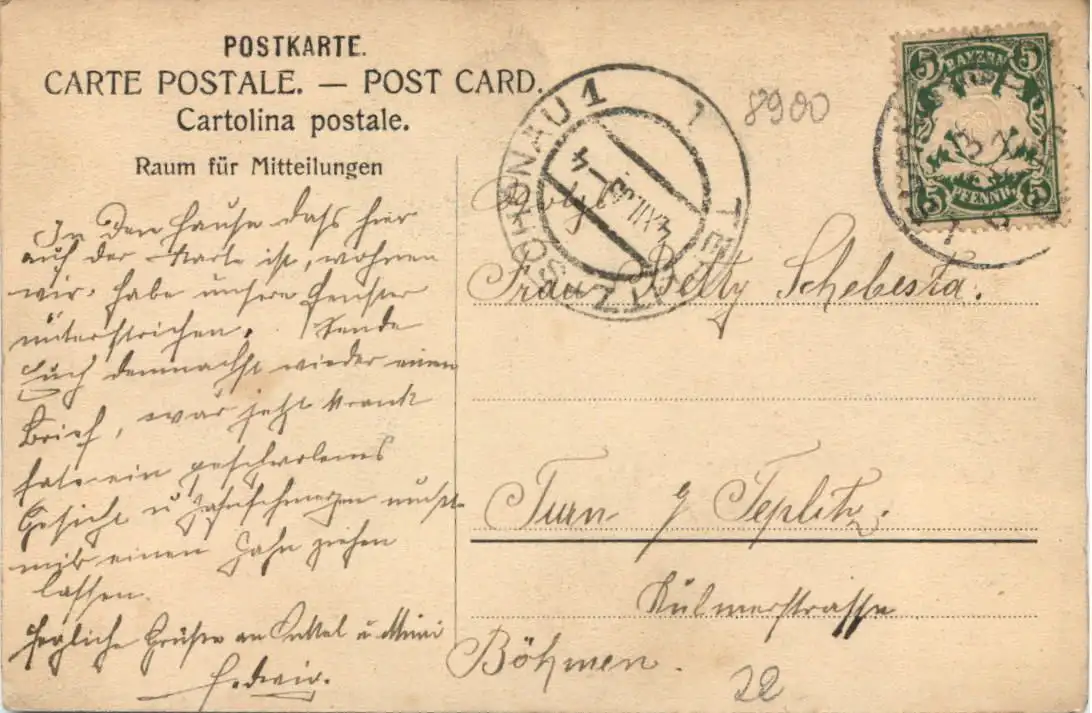 POSTKARTE.
CARTE POSTALE. — POST CARD.
Cartolina postale.
Raum für Mitteilungen
In den Hause dass hier
auf der Karte ist, wohnen
wir. habe unsere Fenster
unterstrichen. Sende
Euch demnächst wieder einen
Brief, war jetzt krank
hate ein geschwolenes
Gesicht u Zahnschmerzen musst
mir einen Zahn ziehen
lassen.
Herzliche Grüsse an u Mini
Hedwig.
8900
BAYERN
5 5
PFENNIG
5 5
TEPLITZ SCHÖNAU 1
1
Frau Betty Schebesta.
Turn Teplitz.
Kulmerstrasse
Böhmen.
22